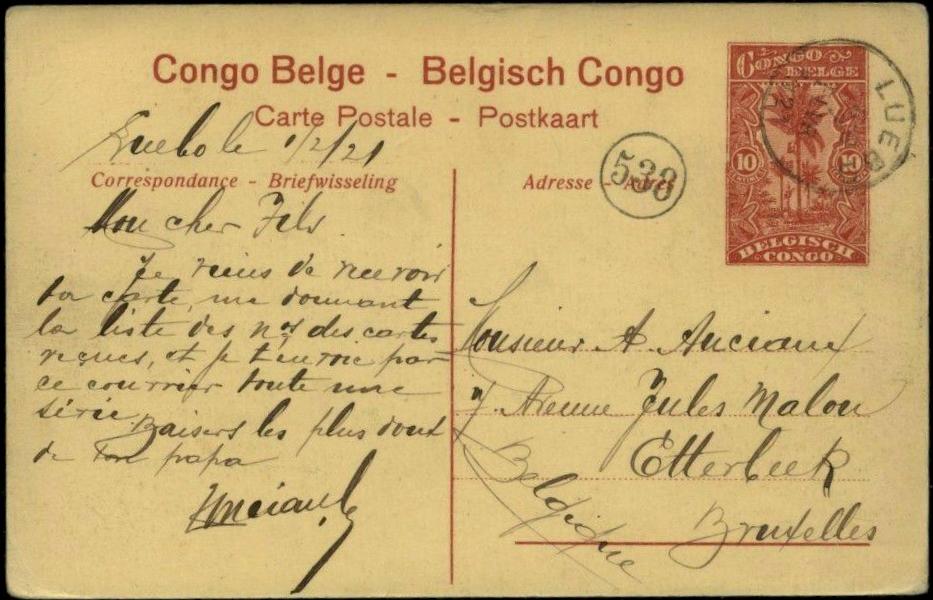 Congo Belge - Belgisch Congo
Carte Postale - Postkaart
Luebo le 1/2/21
Correspondance - Briefwisseling
Adresse - Adres
538
CONGO BELGE
10
BELGISCH CONGO
LUEB
Mon cher Fils.
Je viens de recevoir
ta carte, me donnant
la liste des nos des cartes
reçues, et je t'envoie par
ce courrier toute une
série.
Baisers les plus doux
de ton papa
Anciaux
Monsieur A. Anciaux
7. Avenue Jules Malou
Etterbeek
Bruxelles
Belgique